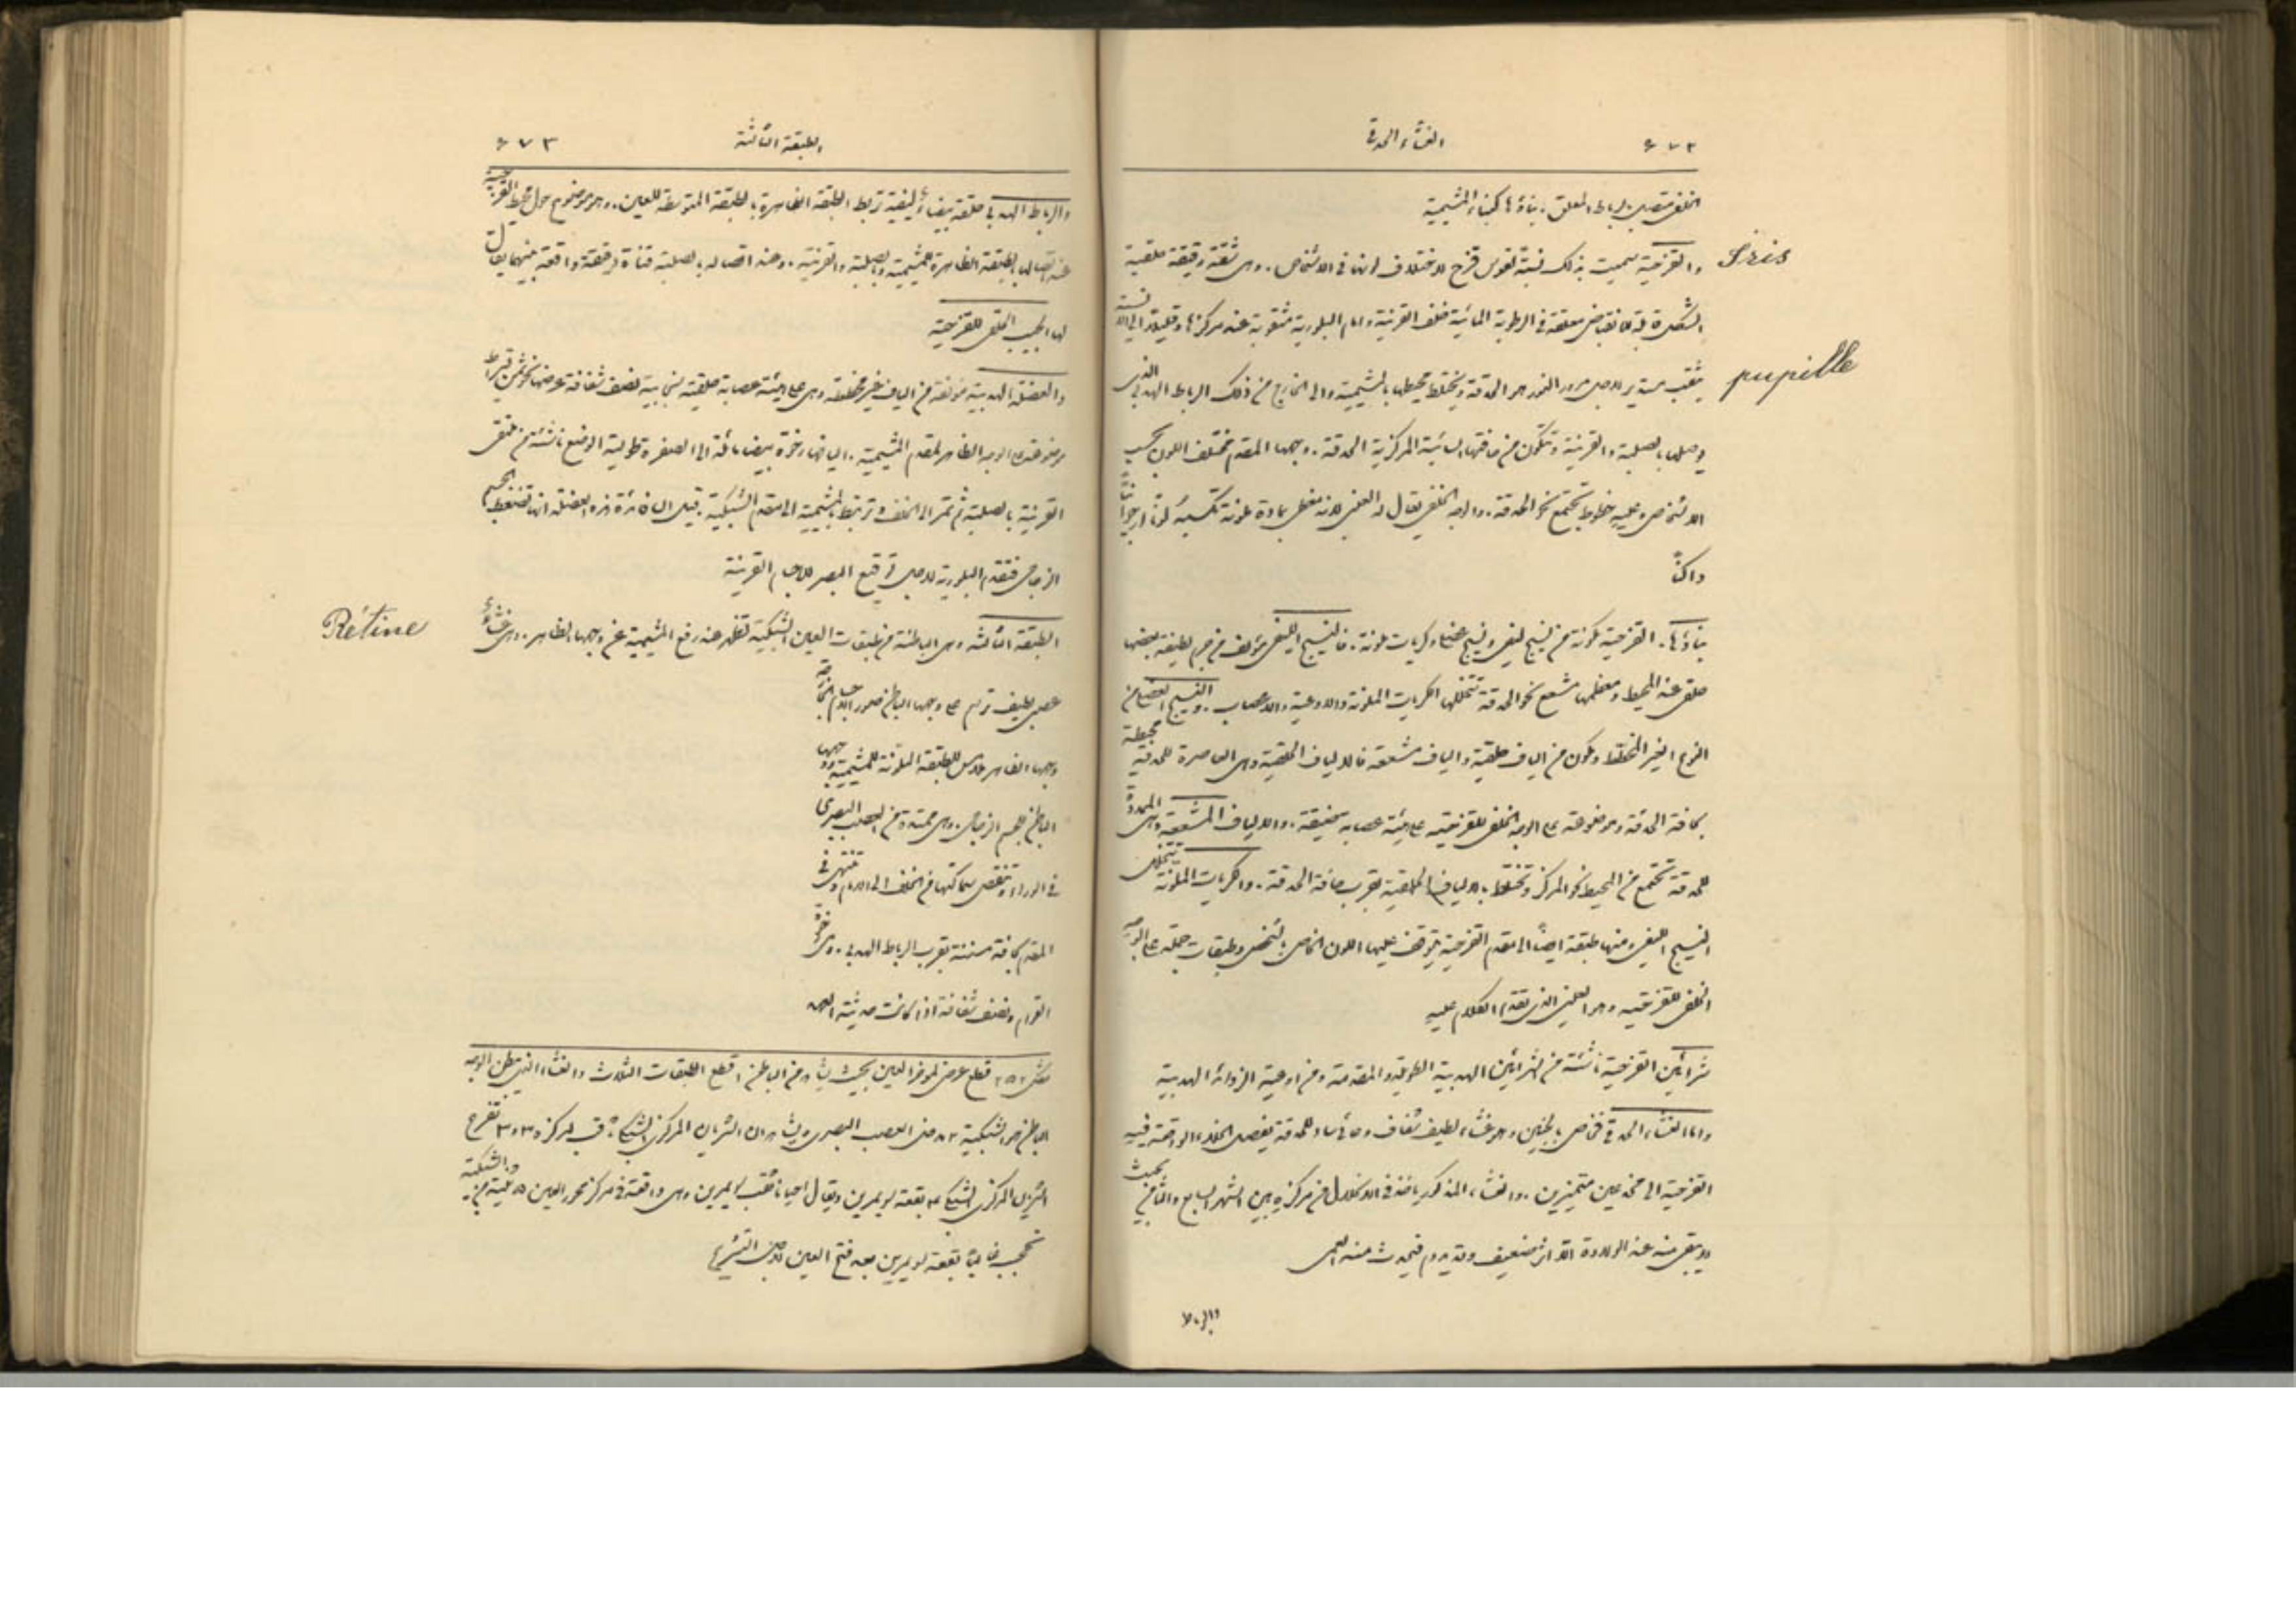 ٦٧٢ الغشاء الحدقي
الخلفي متصل بالرباط المعلق. بناؤها كبناء المشيمية
والقزحية سميت بذلك نسبة لقوس قزح لاختلاف لونها في الاشخاص. وهي شقة رقيقة حلقية
Iris
الشكل قابلة للانقباض معلقة في الرطوبة المائية خلف القرنية وامام البلورية مثقوبة عند مركزها وقليلاً الى الانسية
بثقب مستدير لاجل مرور النور هو الحدقة ويختلط محيطها بالمشيمية والى الخارج من ذلك الرباط الهدبي الذي
pupille
يوصلها بالصلبة والقرنية وتتكون من حافتها السائبة المركزية الحدقة. وجهها المقدم مختلف اللون بحسب
الاشخاص وعليه خطوط تجتمع نحو الحدقة. والوجه الخلفي يقال له العنبي لانه مغطى بمادة ملونة تكسبه لوناً ارجوانياً
داكناً
بناؤها. القزحية مكونة من نسيج ليفي ونسيج عضلي وكريات ملونة. فالنسيج الليفي مؤلف من حزم لطيفة بعضها
حلقي عند المحيط ومعظمها مشعع نحو الحدقة تتخللها الكريات الملونة والاوعية والاعصاب. والنسيج العضلي من
النوع الغير المخطط ومكون من الياف حلقية والياف مشععة فالالياف الحلقية وهي العاصرة للحدقة محيطة
بحافة الحدقة وموضوعة على الوجه الخلفي للقزحية على هيئة عصابة ضيقة. والالياف المشععة وهي الممددة
للحدقة تجتمع من المحيط نحو المركز وتختلط بالالياف الحلقية بقرب حافة الحدقة. والكريات الملونة تتخلل
النسيج الليفي ومنها طبقة ايضاً الى مقدم القزحية يتوقف عليها اللون الخاص بالشخص وطبقات جملة على الوجه
الخلفي للقزحية وهو العنبي الذي تقدم الكلام عليه
شرائين القزحية ناشئة من الشرائين الهدبية الطويلة والمقدمة ومن اوعية الزوائد الهدبية
واما الغشاء الحدقي فخاص بالجنين وهو غشاء لطيف شفاف وعائي ساد للحدقة يفصل الخلاء الواقعة فيه
القزحية الى مخدعين متميزين. والغشاء المذكور ياخذ في الانحلال من مركزه بين الشهر السابع والثامن بحيث
لا يبقى منه عند الولادة الا اثر ضعيف وقد يدوم فيحدث منه العمى
والرباط
الطبقة الثالثة ٦٧٣
والرباط الهدبي حلقة بيضاء ليفية تربط الطبقة الظاهرة بالطبقة المتوسطة للعين. وهو موضوع حول محيط القزحية
عند اتصالها بالطبقة الظاهرة للمشيمية وبالصلبة والقرنية. وعند اتصاله بالصلبة قناة دقيقة واقعة بينهما يقال
لها الجيب الحلقي للقزحية
والعضلة الهدبية مؤلفة من الياف غير مخططة وهي على هيئة عصابة حلقية سنجابية نصف شفافة عرضها نحو ثمن قيراط
موضوعة على الوجه الظاهر لمقدم المشيمية. اليافها رخوة بيضاء مائلة الى الصفرة طولية الوضع ناشئة من ملتقى
القرنية بالصلبة ثم تمر الى الخلف وترتبط بالمشيمية الى مقدم الشبكية. قيل ان فائدة هذه العضلة انها تضغط الجسم
الزجاجي فتقدم البلورية لاجل توقيع البصر للاجسام القريبة
الطبقة الثالثة وهي الباطنة من طبقات العين الشبكية تظهر عند رفع المشيمية عن وجهها الظاهر. وهي غشاء
Rétine
عصبي لطيف ترتسم على وجهها الباطن صور الاجسام الخارجة
وجهها الظاهر ملامس للطبقة الملونة للمشيمية ووجهها
الباطن للجسم الزجاجي. وهي ممتدة من العصب البصري
في الوراء وتنقص سماكتها من الخلف الى الامام وتنتهي في
المقدم بحافة مسننة بقرب الرباط الهدبي. وهي رخوة
القوام ونصف شفافة اذا كانت حديثة العهد
شكل ٢٥٢ قطع عرضي لمؤخر العين بحيث يشاهد من الباطن ١ قطع الطبقات الثلاث والغشاء الذي يبطن الوجه
الباطن هو الشبكية ٢ مدخل العصب البصري ويشاهد ان الشريان المركزي للشبكة ثاقب لمركزه ٣ و٣ تفرع
الشريان المركزي للشبكة ٤ بقعة لويمرين ويقال احياناً ثقب لويمرين وهي واقعة في مركز محور العين ٥ ثنية من الشبكية
تحجب غالباً بقعة لويمرين بعد فتح العين لاجل التشريح